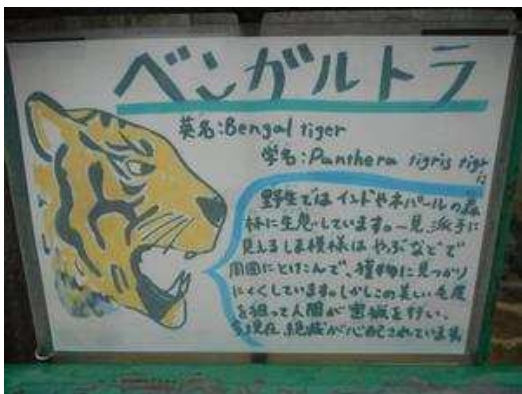 ベンガルトラ
英名:Bengal tiger
学名:Panthera tigris tigris
野生ではインドやネパールの森
林に生息しています。一見派手に
見えるしま模様はやぶなどで
周囲にとけこんで、獲物に見つかり
にくくしています。しかしこの美しい毛皮
を狙って人間が密猟を行い、
現在絶滅が心配されています